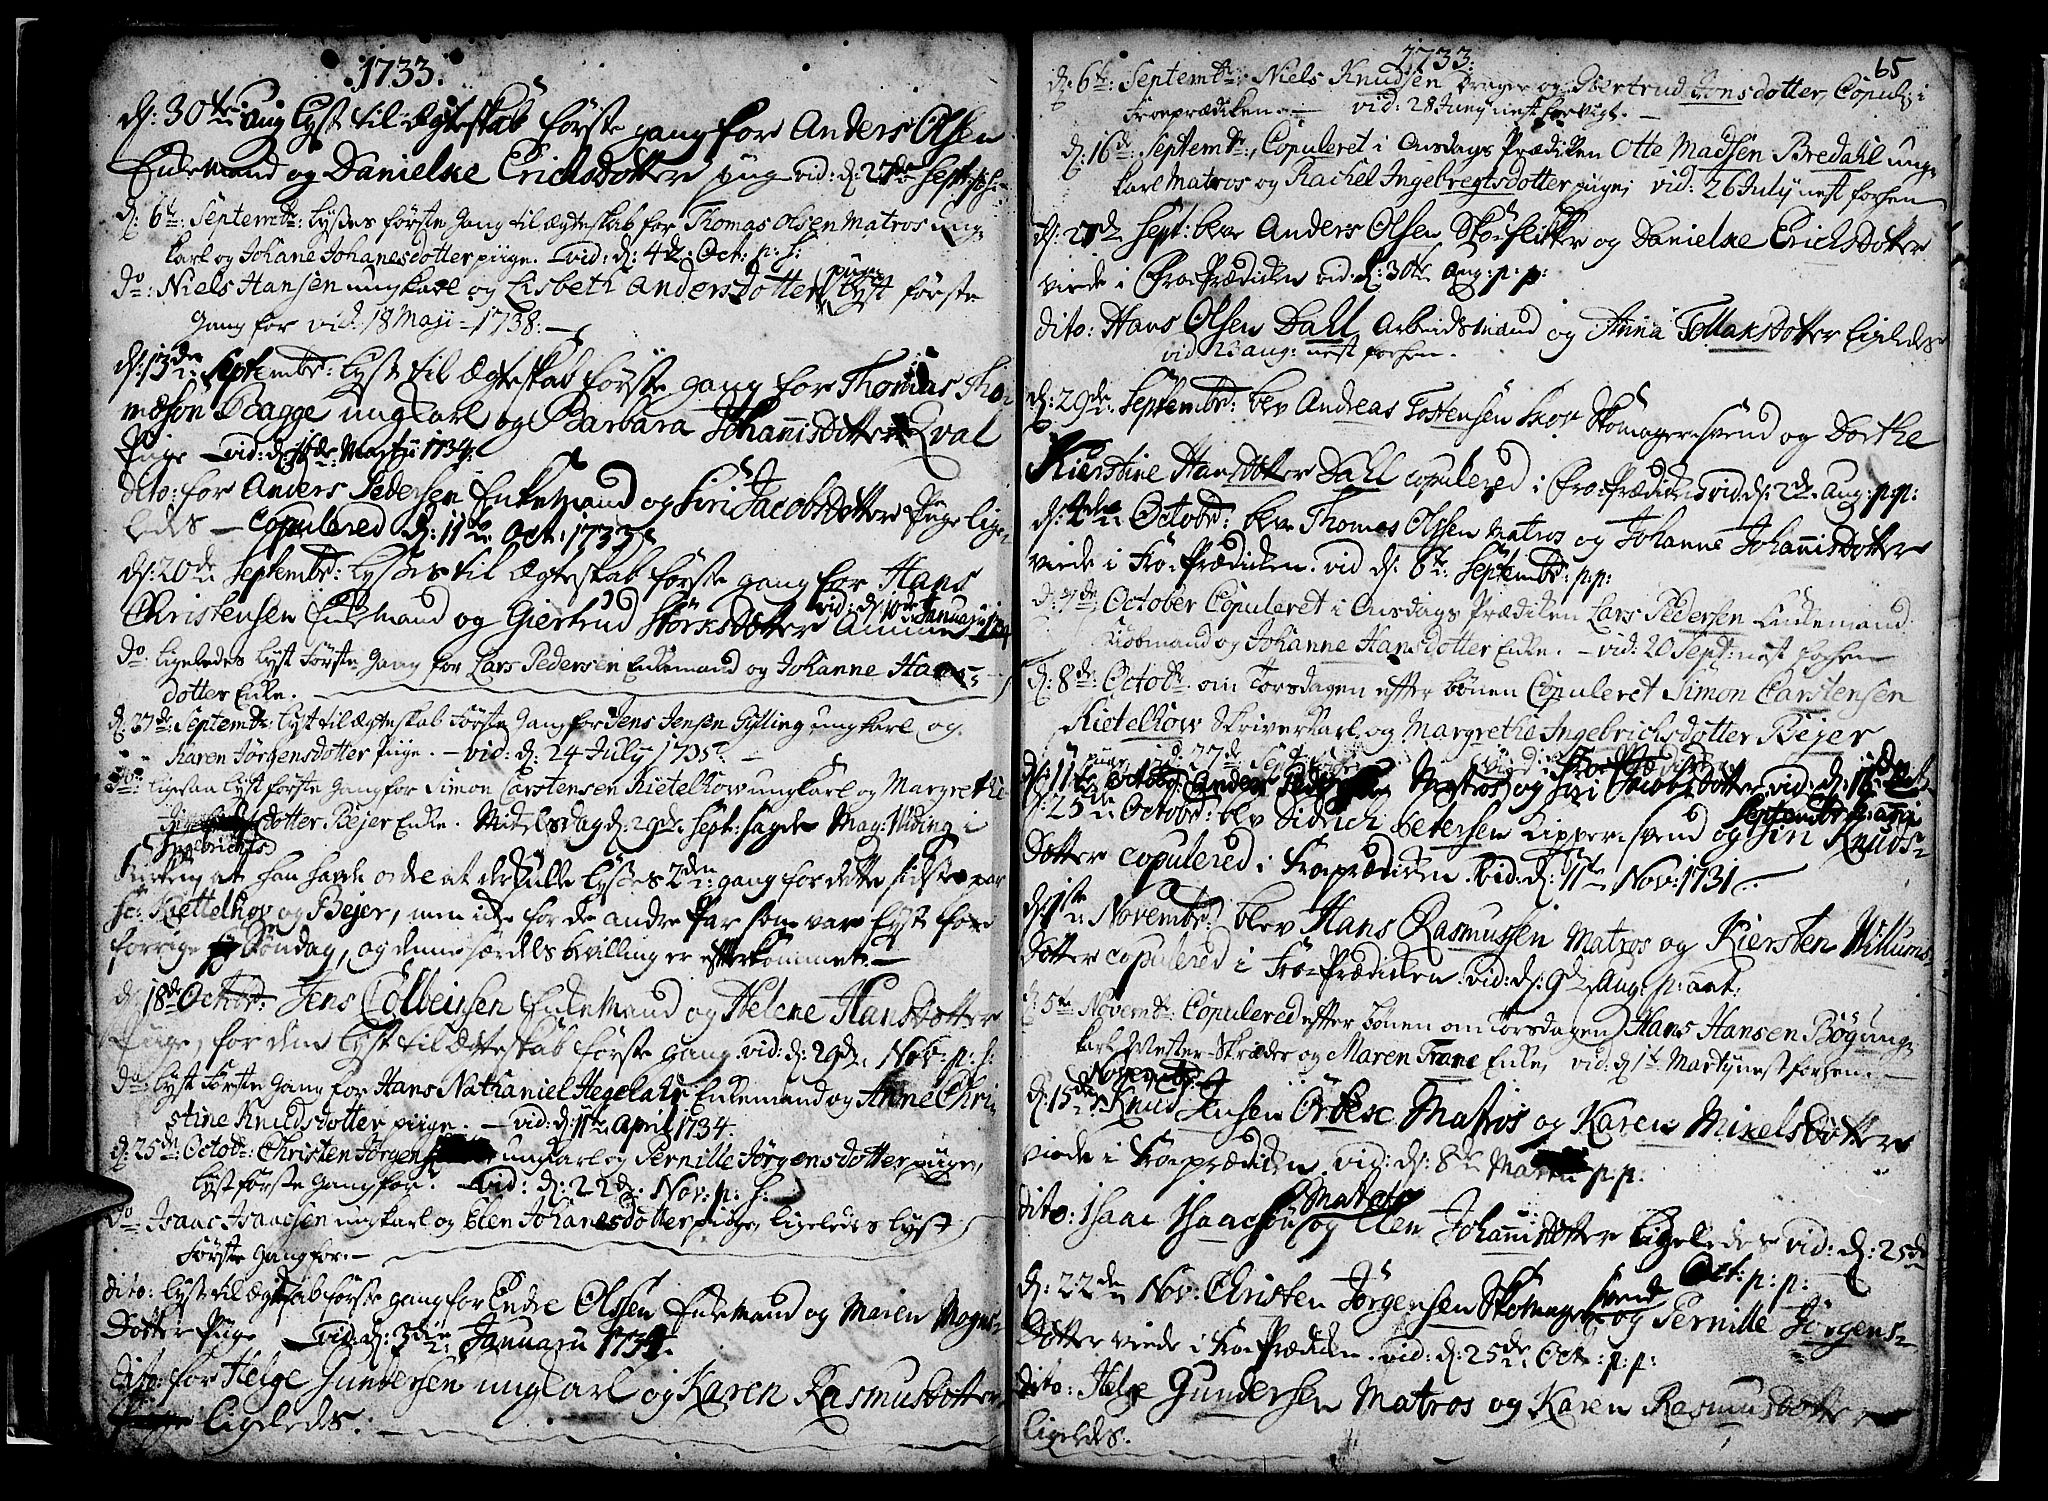 1733.
d: 30te Aug lyst til Ægteskab første gang for Anders Olsen
Enkemand og Danielke Erichsdotter pug vid: d: 27de Sept: p: h:
d: 6te: Septembr: lyses første Gang til ægteskab for Thomas Olsen Matros ung
karl og Johane Johanesdotter piige. – vid: d: 4de Oct: p: h:
do: Niels Hansen ungkarl og Lisbeth Andersdotter piige lyst første
Gang for vid: 18 Maji – 1738: –
d: 13de Septembr: lyst til Ægteskab første gang for Thomas Tho-
mæson Bagge ungkarl og Barbara Johannisdotter Qval
Piige – vid: d: 16de: Martii 1734:
dito: for Anders Pedersen Enkemand og Siri Jacobsdotter Piige lige-
ledes – Copulered d: 11te Oct: 1733
d: 20de Septembr: lyses til Ægteskab første gang for Hans
Christensen Enkemand og Giertrud Störksdotter vid: d: 10de Januarij 1734
do: ligeledes lyst Første Gang for Lars Pedersen Enkemand og Johanne Hans-
dotter Enke. –
d: 27de: Septembr: lyst til ægteskab Første Gang for Jens Jensen Gylling ungkarl og
Karen Jørgensdotter Piige. – vid: d: 24 July 1735. –
do ligesaa lyst første Gang for Simon Carstensen Kietelhow ungkarl og Margrethe
Ingebrichtsdotter Bejer Enke. Mikelsdag d: 29de Sept: sagde Mag: Wding i
Kirken at han havde ordre at der skulle lyses 2den gang for dette sidste par
sc: Kettelhov og Bejer, men icke for de andre Par som var lyst for
forrige Søndag, og denne særdeles bevilling er efterkommet. –
d: 18de Octobr: Jens Colbeinsen Enkemand og Helene Hansdotter
Piige, for dem lyst til Ægteskab første gang. vid: d: 29de Nov: p: h:
do: lyst Første Gang for Hans Nathaniel Hegelahr Enkemand og Anne Chri-
stine Knudsdotter piige. – vid: d: 11te April 1734.
d: 25de Octobr: Christen Jørgensen ungkarl og Pernille Jørgensdotter piige,
lyst første Gang for. – vid: d: 22de Nov: p: h:
do Isaac Isaacsen ungkarl og Elen Johanesdotter piige, ligeledes lyst
Første Gang for. –
dito: lyst til Ægteskab første gang for Endre Olssen Enkemand og Maren Mogns-
Dotter Piige – vid: d: 3die Januarii 1734.
dito: for Helge Gundersen ungkarl og Karen Rasmusdotter
ligeledes. –
1733. 65
d: 6te: Septembr: Niels Knudsen Drager og Giertrud Jonsdotter, Copul: i
Froeprædiken. – vid: 28 Junij nest forvigt. –
d: 16de: Septembr: Copuleret i Onsdags Prædiken Otte Madsen Bredahl ung-
karl Matros og Rachel Ingebregtsdotter piige; vid: 26 July nest forhen
d: 27de Sept: blev Anders Olsen Skoeflikker og Danielke Erichsdotter
viede i Froe Prædiken vid: d: 30te Aug: p: p:
dito: Hans Olsen Dahl Arbeidsmand og Anna Tollaksdotter ligeledes
vid 23 aug: nest forhen.
d: 29de: Septembr: blev Andreas Tostensen Skomagersvend og Dorthe
Kierstine Hansdotter Dahl copulered i Froe Prædiken vid: d: 2de Aug: p: p:
d: 4de Octobr: blev Thomas Olssen Matros og Johanne Johannisdotter
viede i Fro-Prædiken. vid d: 6te Septembr: p: p:
d: 7de October Copuleret i Onsdags Prædiken Lars Pedersen Enkemand
Kiøbmand og Johanne Hansdotter Enke. – vid: 20 Sept: nest forhen
d: 8de: Octobr om Torsdagen efter bønen Copuleret Simon Carstensen
Kietelhow Skriverkarl og Margrethe Ingebrichsdotter Bejer
vid: 27de Sept
d: 11te Octobr Anders Pedersen Matros og Siri Jacobsdotter vid: d: 13de
Septembr
d: 25de Octobr: blev Didrich Petersen Kippersvend og Siri Knuds-
Dotter copulered i Froeprædiken. vid: d: 11te Nov: 1731. –
d: 1ste Novembr: blev Hans Rasmussen Matros og Kiersten Willums-
Dotter copulered i Froe-Prædiken. vid: d: 9de Aug: p: ant:
d: 5te Novembr Copulered efter bønen om Torsdagen Hans Hansen Bøg ung-
karl Mester Skræder og Maren Trane Enke, vid: d: 1te Martij nest forhen. –
d: 15de Novembr Knud Jensen Örbek Matros og Karen Mikelsdotter
viede i Froeprædiken. vid: d: 8de Martii p: p:
dito: Isaac Isaachsøn Matros og Elen Johannisdotter ligeledes vid: d: 25de
Oct: p: p:
d: 22de Nov: Christen Jørgensen Skomagersvend og Pernille Jørgens-
Dotter viede i Froe Prædiken. vid: d: 25de Oct: p: p:
dito: Helge Gundersen Matros og Karen Rasmusdotter
ligeledes.